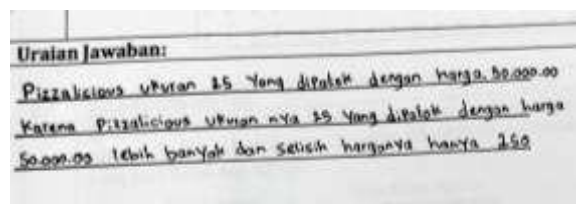 Uraian Jawaban:
Pizzalicious ukuran 25 yang dipatok dengan harga 50.000.00
Karena Pizzalicious ukuran nya 25 yang dipatok dengan harga
50.000.00 lebih banyak dan selisih harganya hanya 250